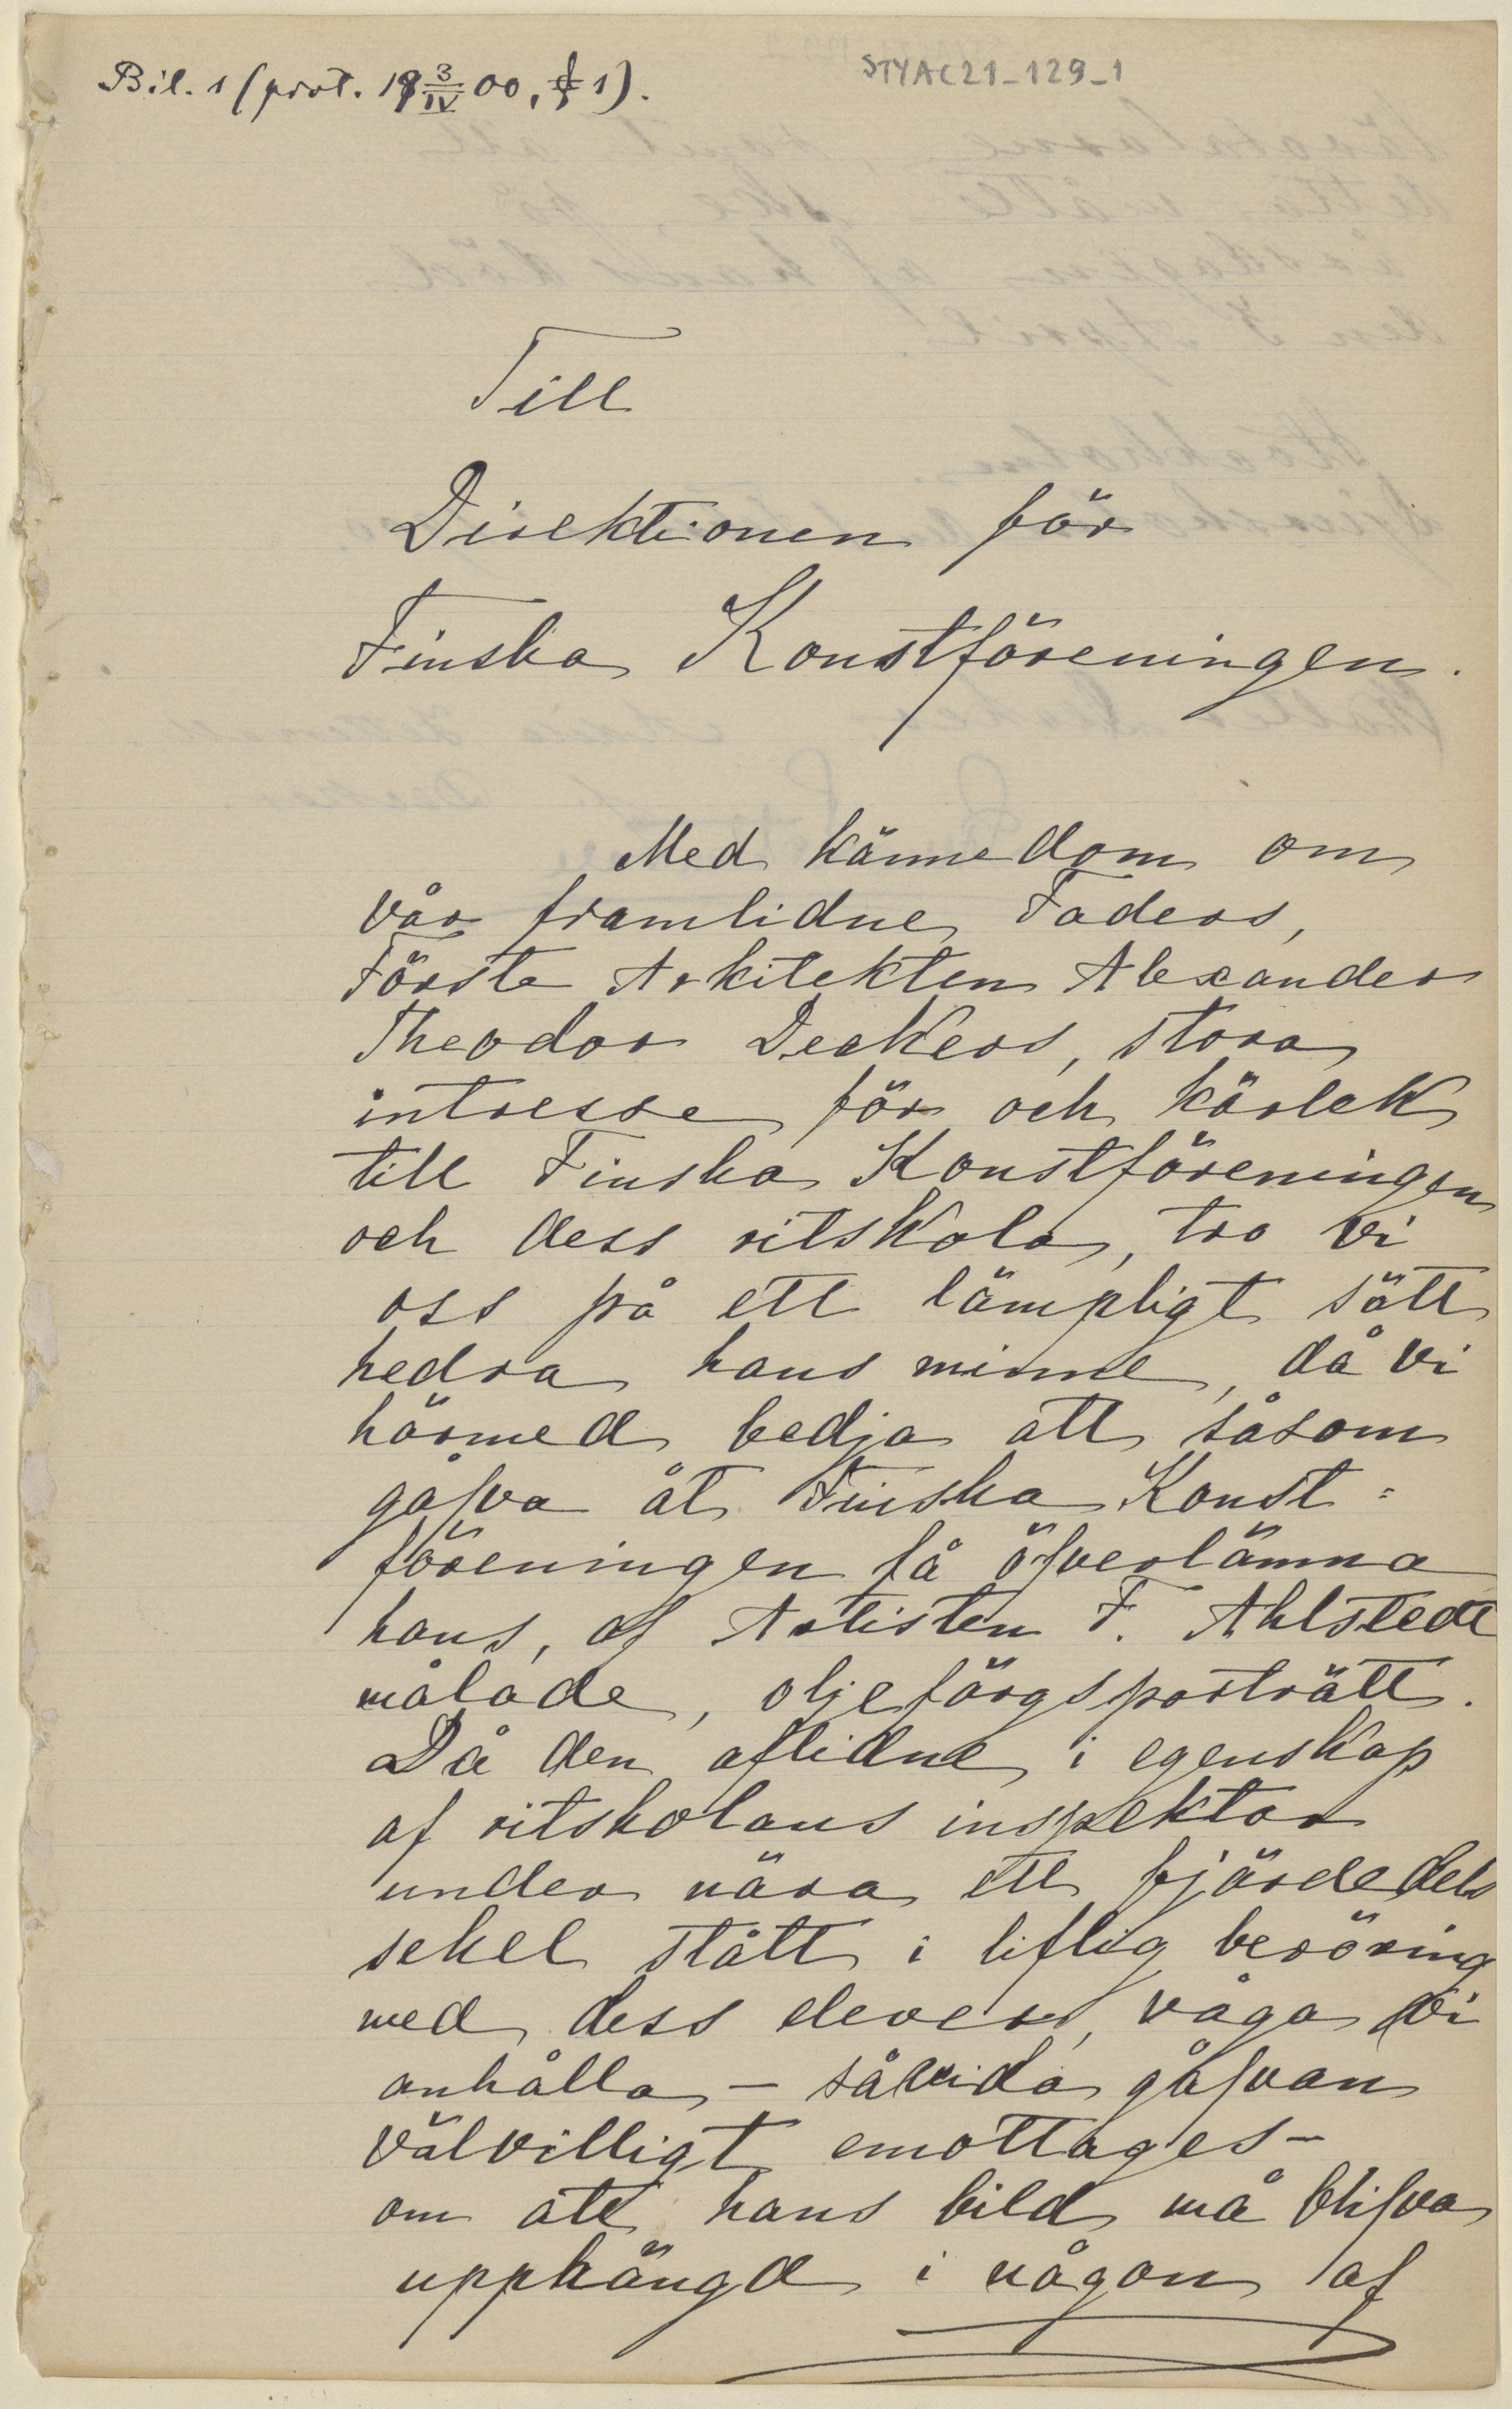 Bil. 1 (prot. 19 3/IV 00, § 1).
STYAC21-129-1
Till
Direktionen för
Finska Konstföreningen.
Med kännedom om
vår framlidne Faders,
Förste Arkitekten Alexander
Theodor Deckers, stora
intresse för och kärlek
till Finska Konstföreningen
och dess ritskola, tro vi
oss på ett lämpligt sätt
hedra hans minne, då vi
härmed bedja att såsom
gåfva åt Finska Konst=
föreningen få öfverlämna
hans, af Artisten F. Ahlstedt
målade, oljefärgsporträtt.
Då den aflidne i egenskap
af ritskolans inspektor
under nära ett fjärdedels
sekel stått i liflig beröring
med dess elever, våga vi
anhålla – såvida gåfvan
välvilligt emottages –
om att hans bild må blifva
upphängd i någon af